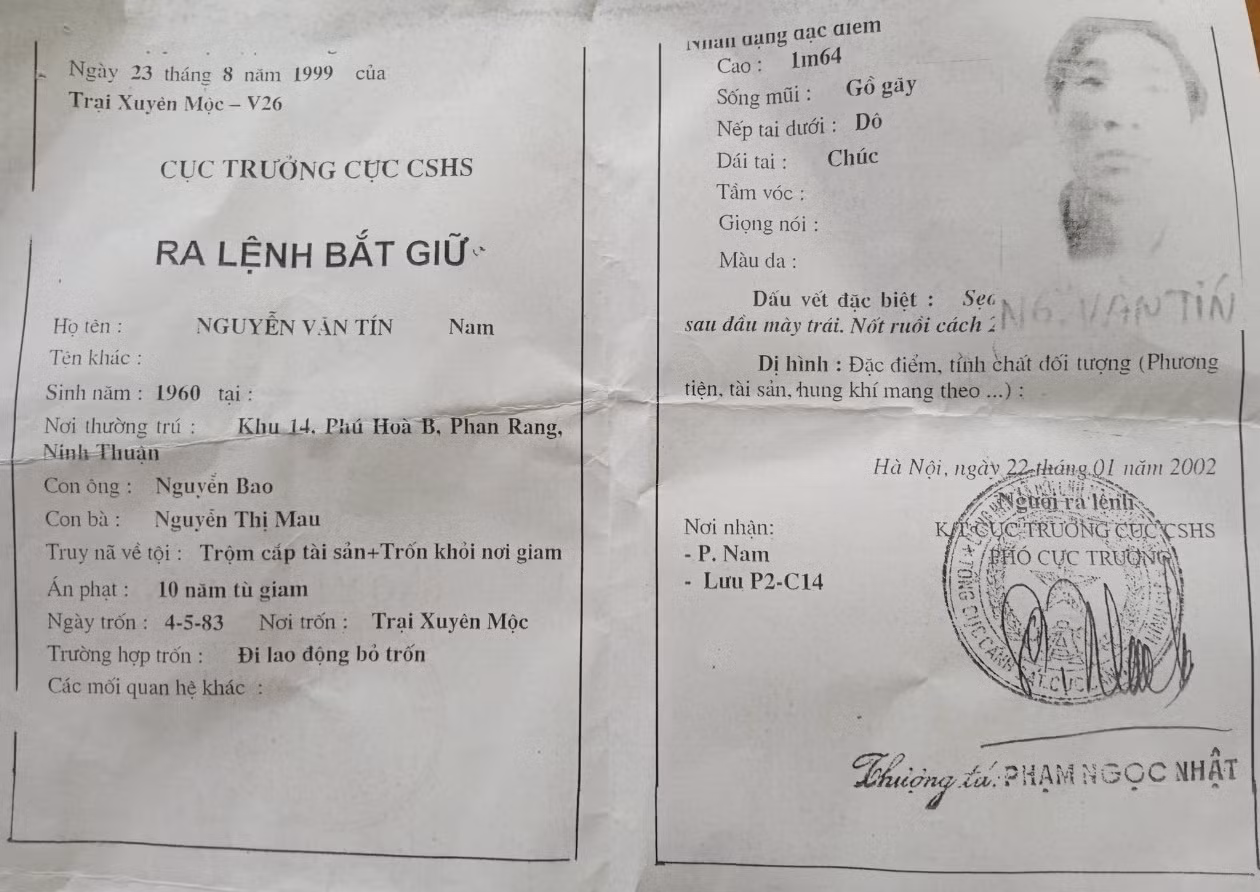 Ngày 23 tháng 8 năm 1999 của
Trại Xuyên Mộc – V26
CỤC TRƯỞNG CỰC CSHS
RA LỆNH BẮT GIỮ
Họ tên : NGUYỄN VĂN TÍN Nam
Tên khác :
Sinh năm : 1960 tại :
Nơi thường trú : Khu 14. Phú Hoà B, Phan Rang,
Ninh Thuận
Con ông : Nguyễn Bao
Con bà : Nguyễn Thị Mau
Truy nã về tội : Trộm cắp tài sản+Trốn khỏi nơi giam
Án phạt : 10 năm tù giam
Ngày trốn : 4-5-83 Nơi trốn : Trại Xuyên Mộc
Trường hợp trốn : Đi lao động bỏ trốn
Các mối quan hệ khác :
Nhân dạng đặc điểm
Cao : 1m64
Sống mũi : Gồ gãy
Nếp tai dưới : Dô
Dái tai : Chúc
Tầm vóc :
Giọng nói :
Màu da :
Dấu vết đặc biệt : Sẹo
sau đầu mày trái. Nốt ruồi cách
NG. VĂN TÍN
Dị hình : Đặc điểm, tính chất đối tượng (Phương
tiện, tài sản, hung khí mang theo ...) :
Hà Nội, ngày 22 tháng 01 năm 2002
Người ra lệnh
K/T CỤC TRƯỞNG CỤC CSHS
PHÓ CỤC TRƯỞNG
Nơi nhận:
- P. Nam
- Lưu P2-C14
Thượng tá: PHẠM NGỌC NHẬT